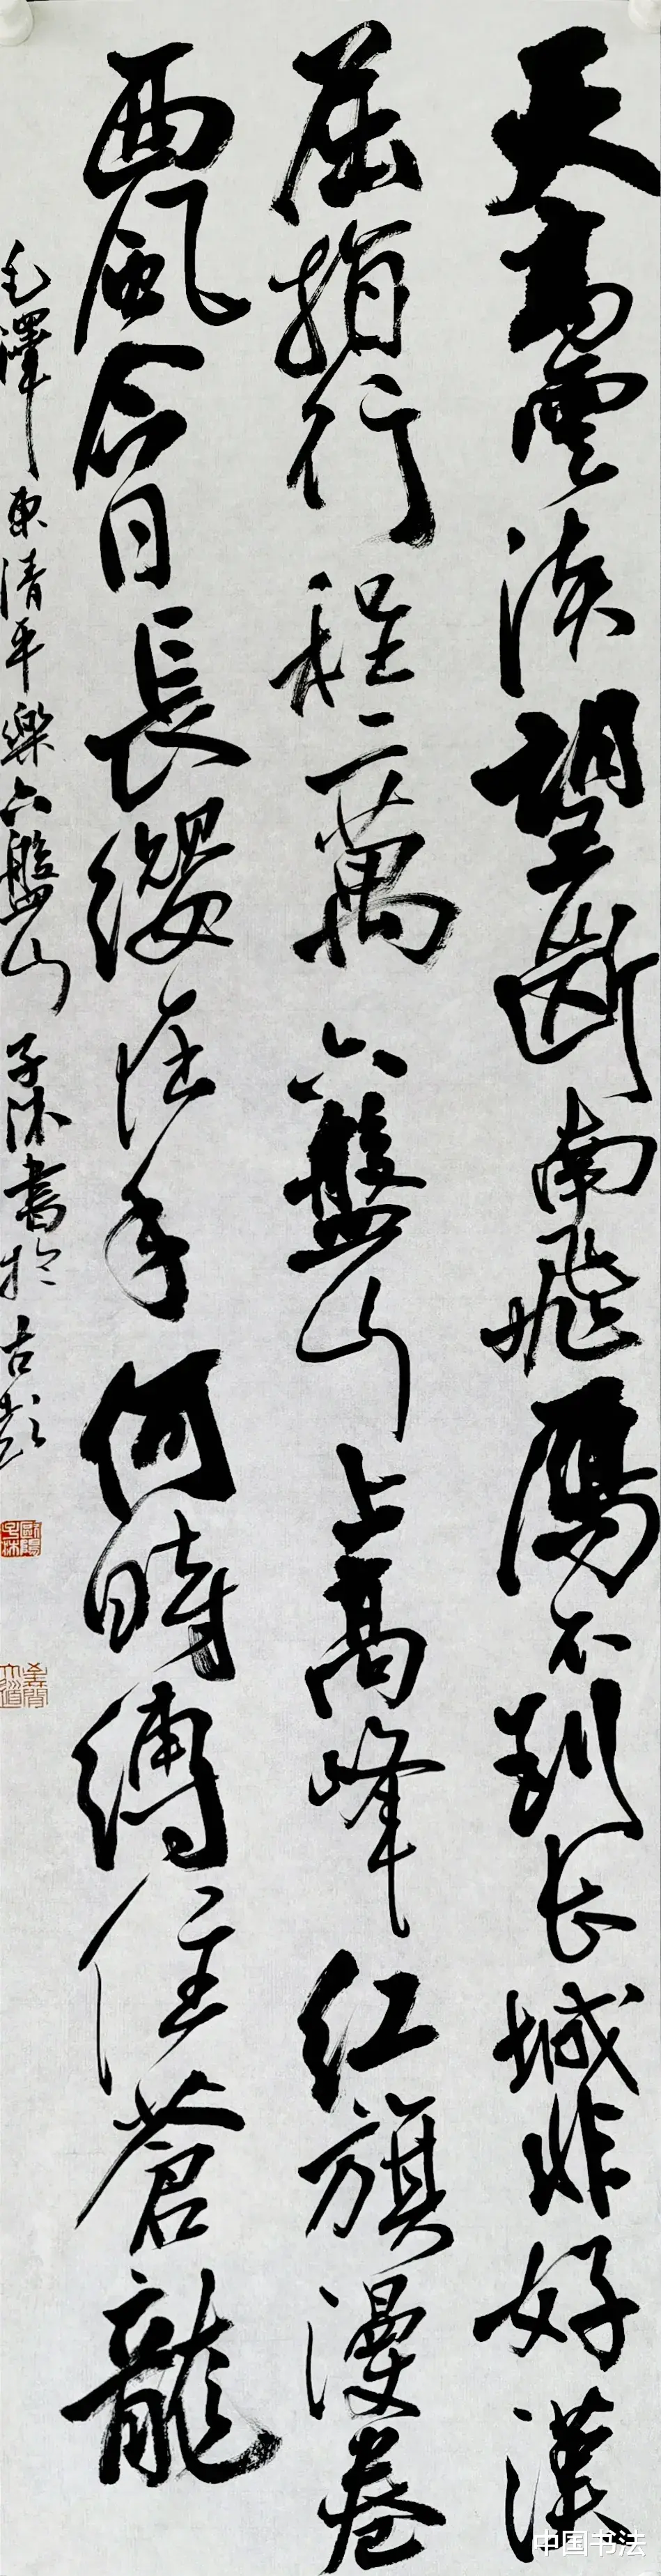 天高雲淡望斷南飛雁不到长城非好漢
屈指行程二萬六盤山上高峰红旗漫卷
西風今日長缨在手何時縛住蒼龍
毛澤东清平樂六盤山 子沐書於古彭
歐陽子沐
中国书法